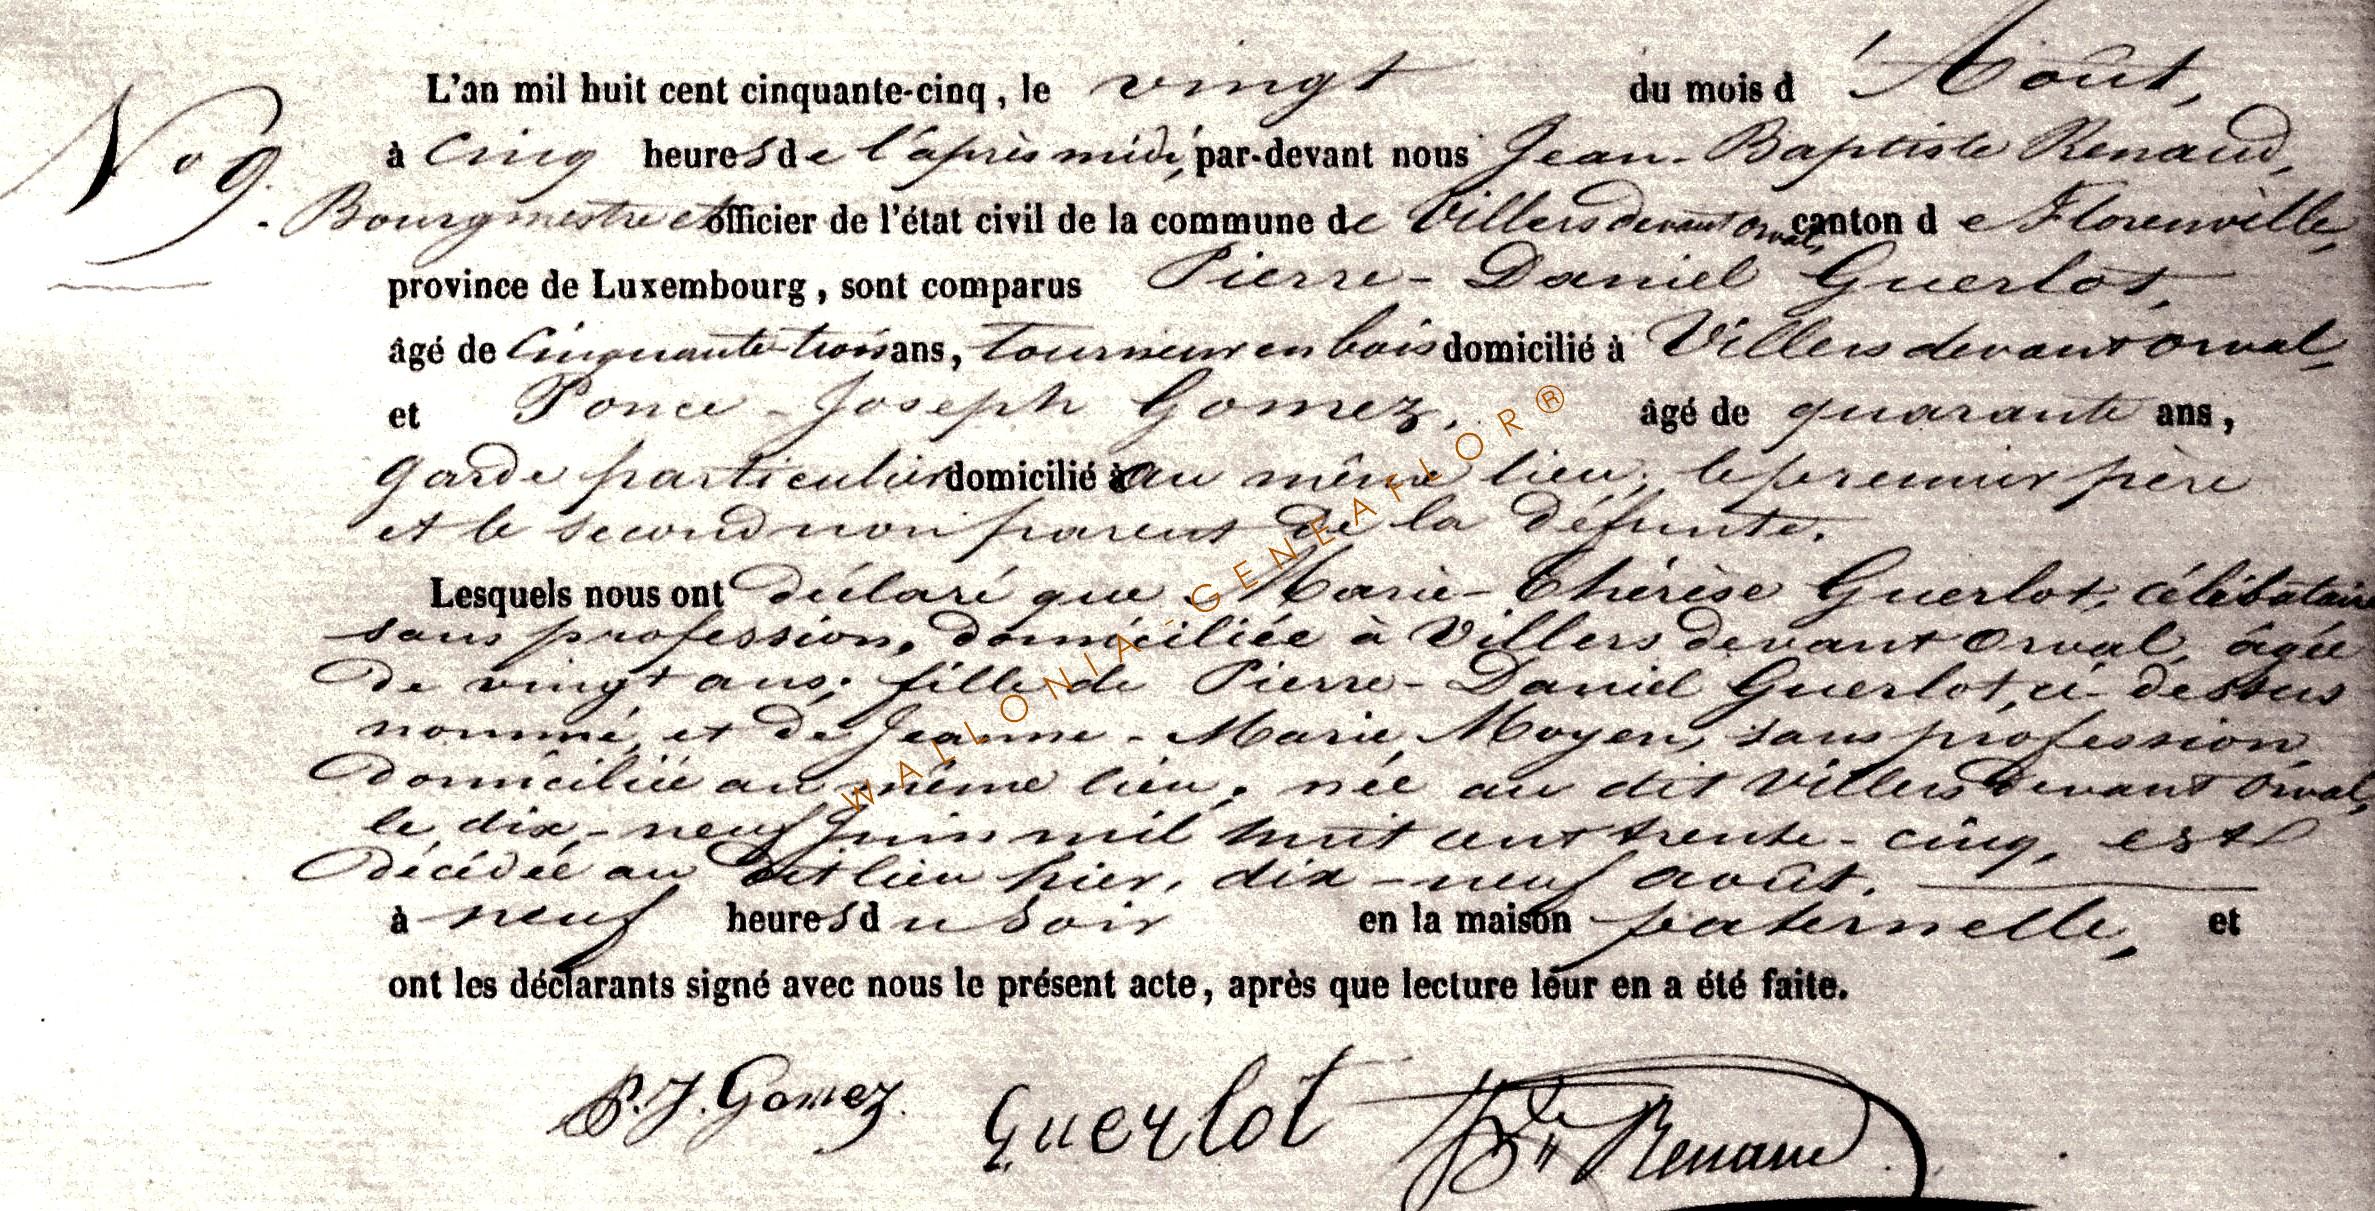 L'an mil huit cent cinquante-cinq, le vingt du mois d'Août,
No 9. à cinq heures de l'après midi, par-devant nous Jean-Baptiste Renaud,
Bourgmestre et officier de l'état civil de la commune de Villers devant Orval, canton de Florenville,
province de Luxembourg, sont comparus Pierre-Daniel Guerlot,
âgé de cinquante-trois ans, tourneur en bois domicilié à Villers devant Orval,
et Ponce-Joseph Gomez, âgé de quarante ans,
garde particulier domicilié à au même lieu, le premier père
et le second non parent de la défunte.
Lesquels nous ont déclaré que Marie-Thérèse Guerlot, célibataire
sans profession, domiciliée à Villers devant Orval, âgée
de vingt ans; fille de Pierre-Daniel Guerlot, ci-dessus
nommé, et de Jeanne-Marie Moyen, sans profession,
domiciliée au même lieu; née au dit Villers devant Orval,
le dix-neuf Juin mil huit cent trente-cinq, est
décédée au dit lieu hier, dix-neuf août.
à neuf heures du soir en la maison paternelle, et
ont les déclarants signé avec nous le présent acte, après que lecture leur en a été faite.
P. J. Gomez. Guerlot JBte Renaud
WALLONIA-GENEAFLOR®